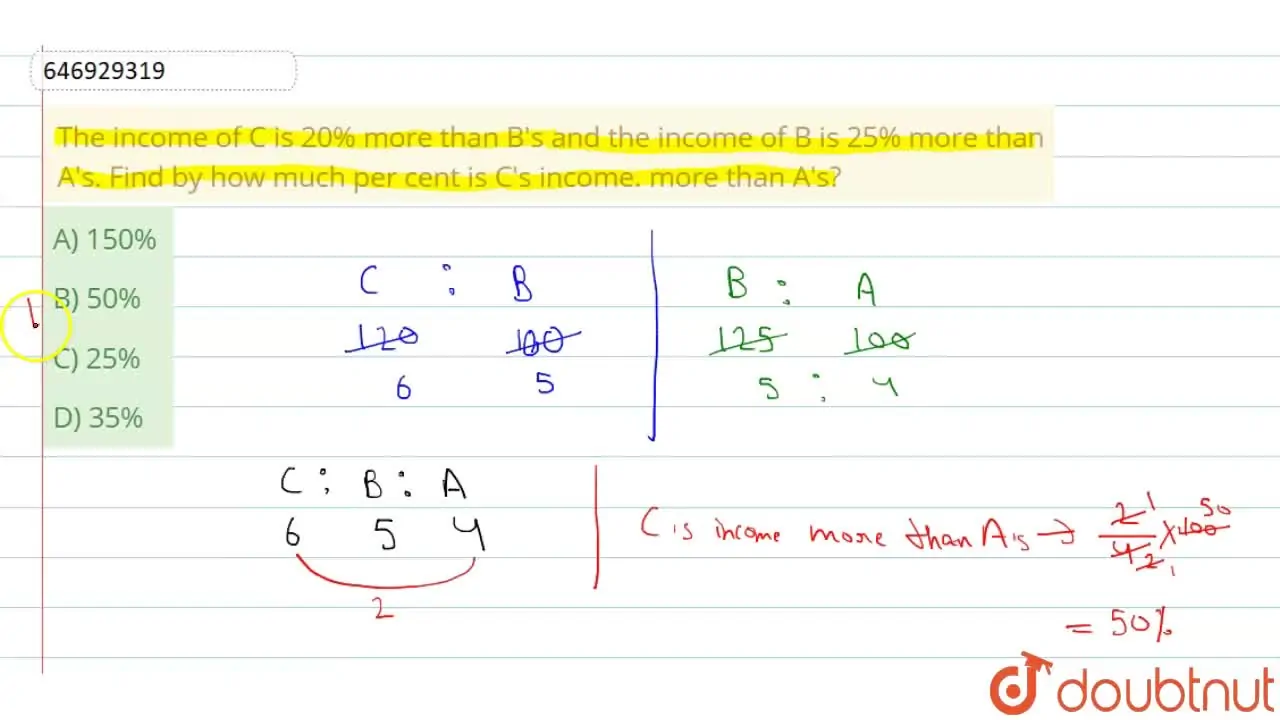 646929319
The income of C is 20% more than B's and the income of B is 25% more than
A's. Find by how much per cent is C's income. more than A's?
A) 150%
B) 50%
C) 25%
D) 35%
C : B
120 100
6 5
B : A
125 100
5 : 4
C : B : A
6 5 4
2
C is income more than A's → 2/4 × 100 1 2 1 50
= 50%
doubtnut